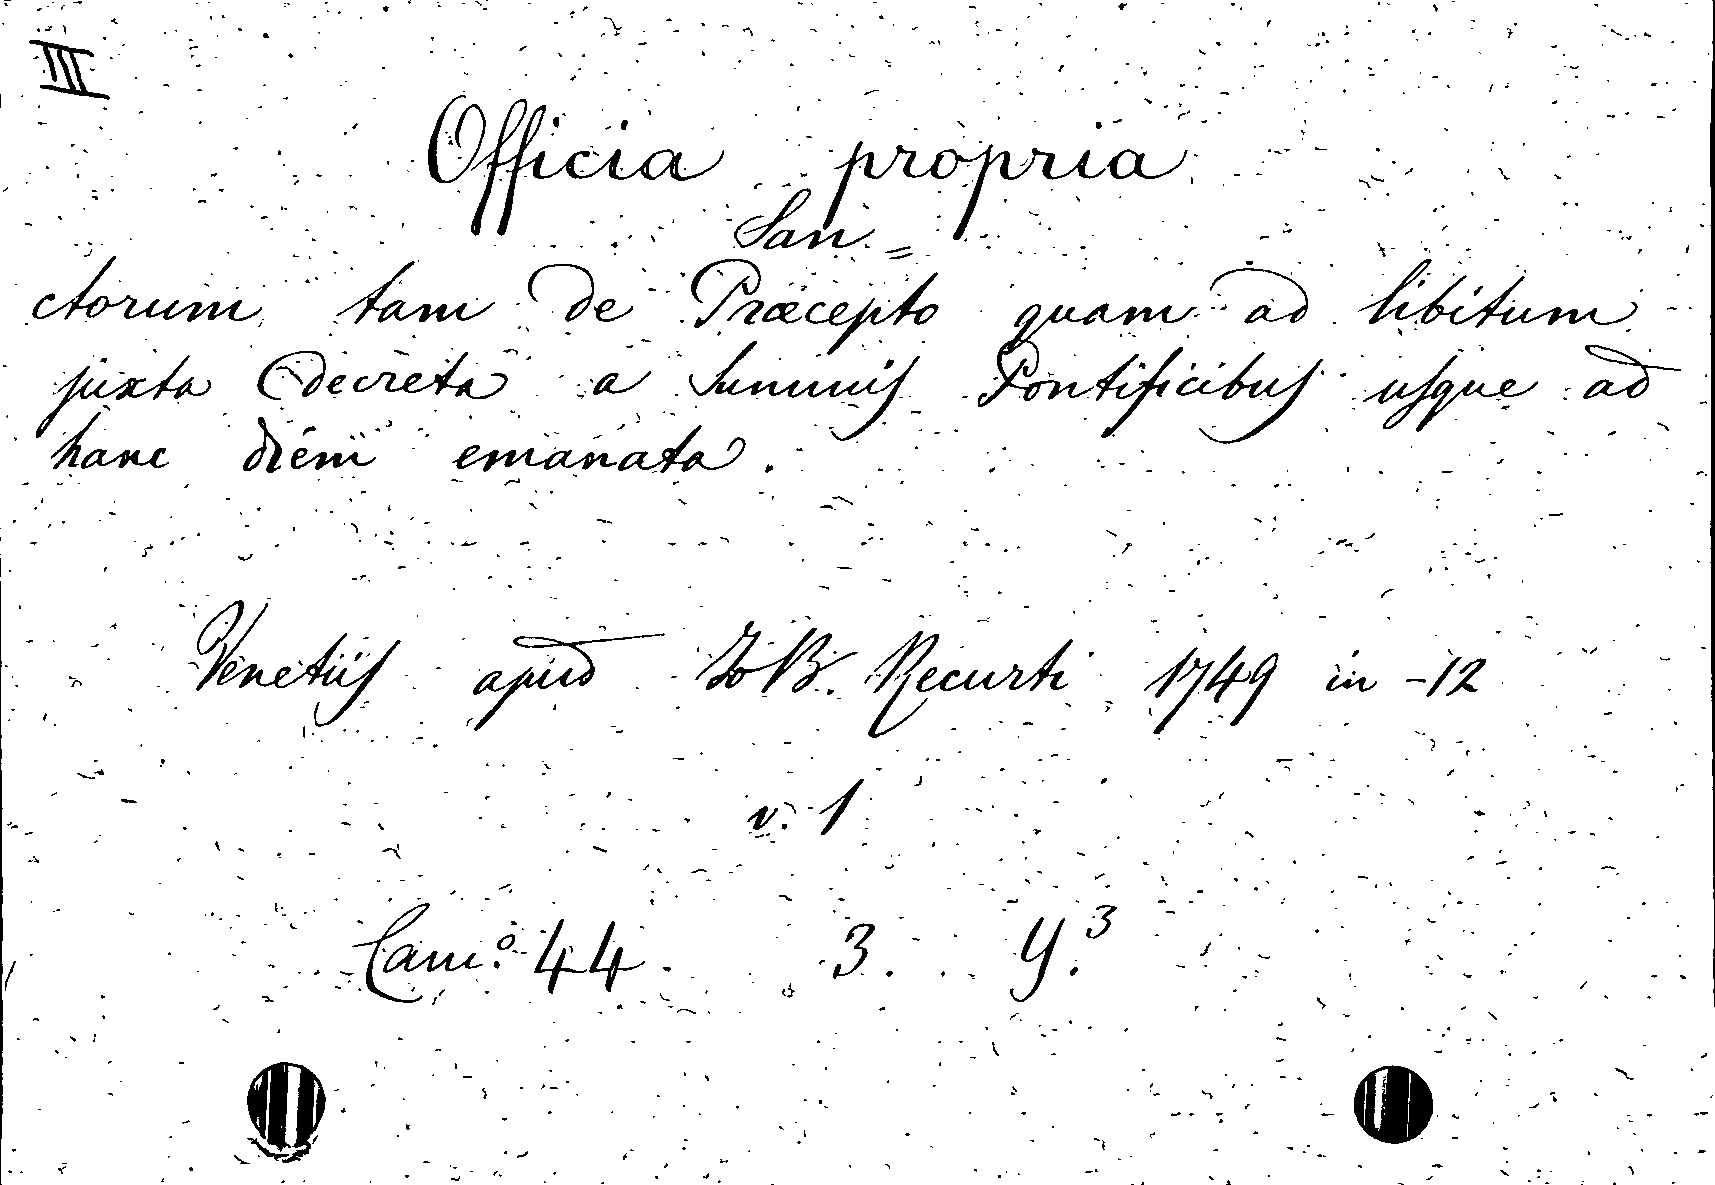 III
Officia propria
San=
ctorum tam de Præcepto quam ad libitum
juxta decreta a Summis Pontificibus usque ad
hanc diem emanata.
Venetiis apud Jo B. Recurti 1749 in -12
v. 1
Cam.º 44 3. Y.³